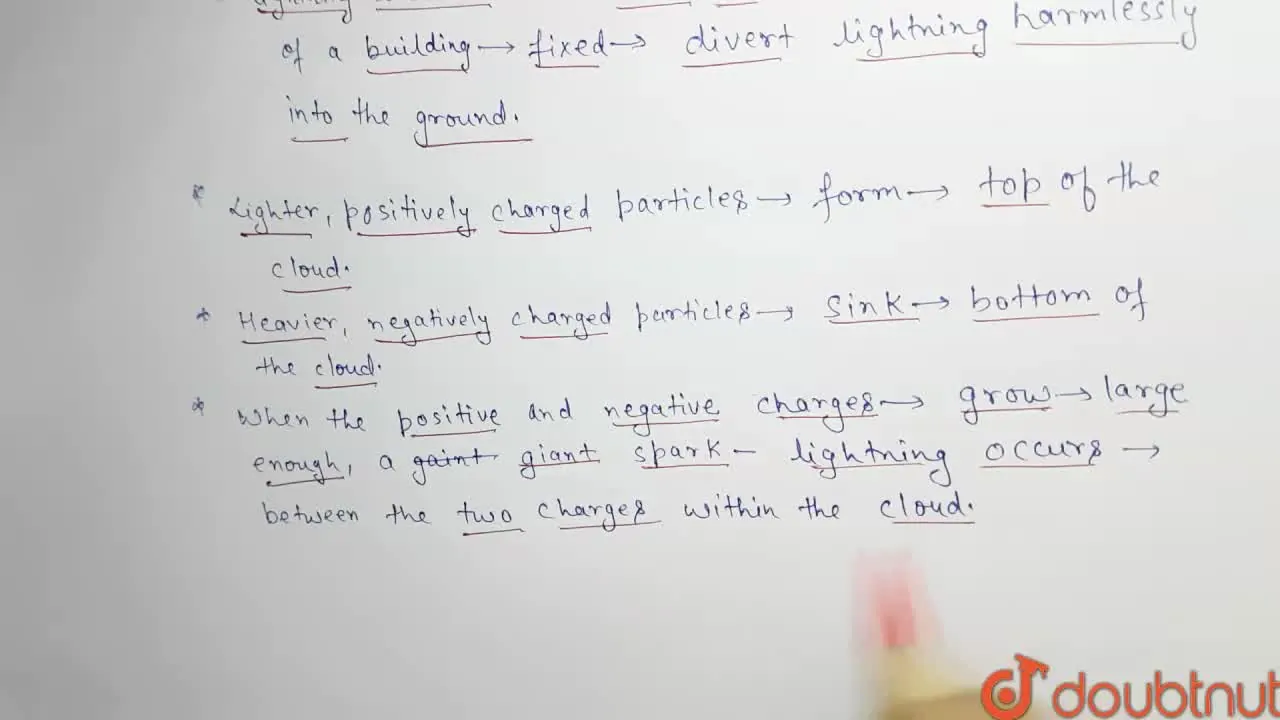 of a building → fixed → divert lightning harmlessly
into the ground.
* Lighter, positively charged particles → form → top of the
cloud.
* Heavier, negatively charged particles → sink → bottom of
the cloud.
* When the positive and negative charges → grow → large
enough, a gaint giant spark - lightning occurs →
between the two charges within the cloud.
doubtnut